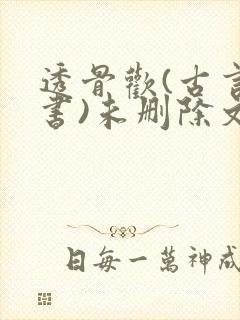 透骨歡(古言
書)未刪除文
日每一萬神成